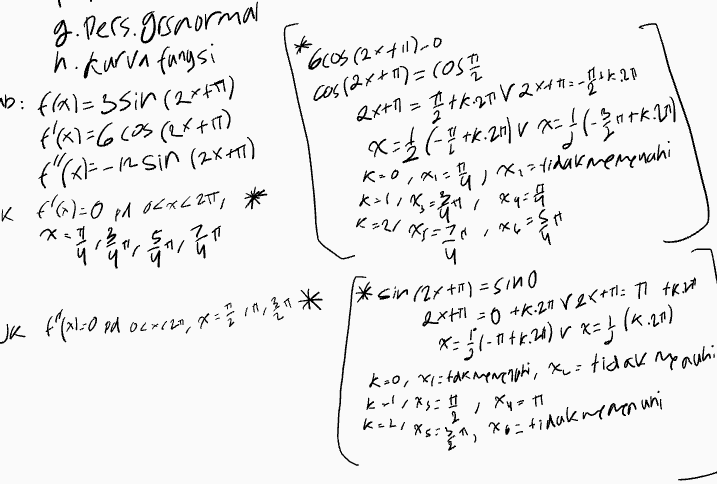 g. Pers. grs normal
h. kurva fungsi
b: f(x) = 3 sin (2x+π)
f'(x) = 6 cos (2x+π)
f''(x) = -12 sin (2x+π)
K f'(x)=0 pd 0<x<2π, *
x = π/4, 3/4 π, 5/4 π, 7/4 π
JK f''(x)=0 pd 0<x<2π, x = π/2, π, 3/2 π *
* 6cos (2x+π)=0
cos (2x+π) = cos π/2
2x+π = π/2 + k.2π ∨ 2x+π = -π/2 + k.2π
x = 1/2 (-π/2 + k.2π) ∨ x = 1/2 (-3/2 π + k.2π)
k=0, x₁ = π/4, x₂ = tidak memenuhi
k=1, x₃ = 3/4 π, x₄ = π/4
k=2, x₅ = 7/4 π, x₆ = 5/4 π
* sin (2x+π) = sin 0
2x+π = 0 + k.2π ∨ 2x+π = π + k.2π
x = 1/2 (-π + k.2π) ∨ x = 1/2 (k.2π)
k=0, x₁ = tdk memenuhi, x₂ = tidak memenuhi
k=1, x₃ = π/2, x₄ = π
k=2, x₅ = 3/2 π, x₆ = tidak memenuhi